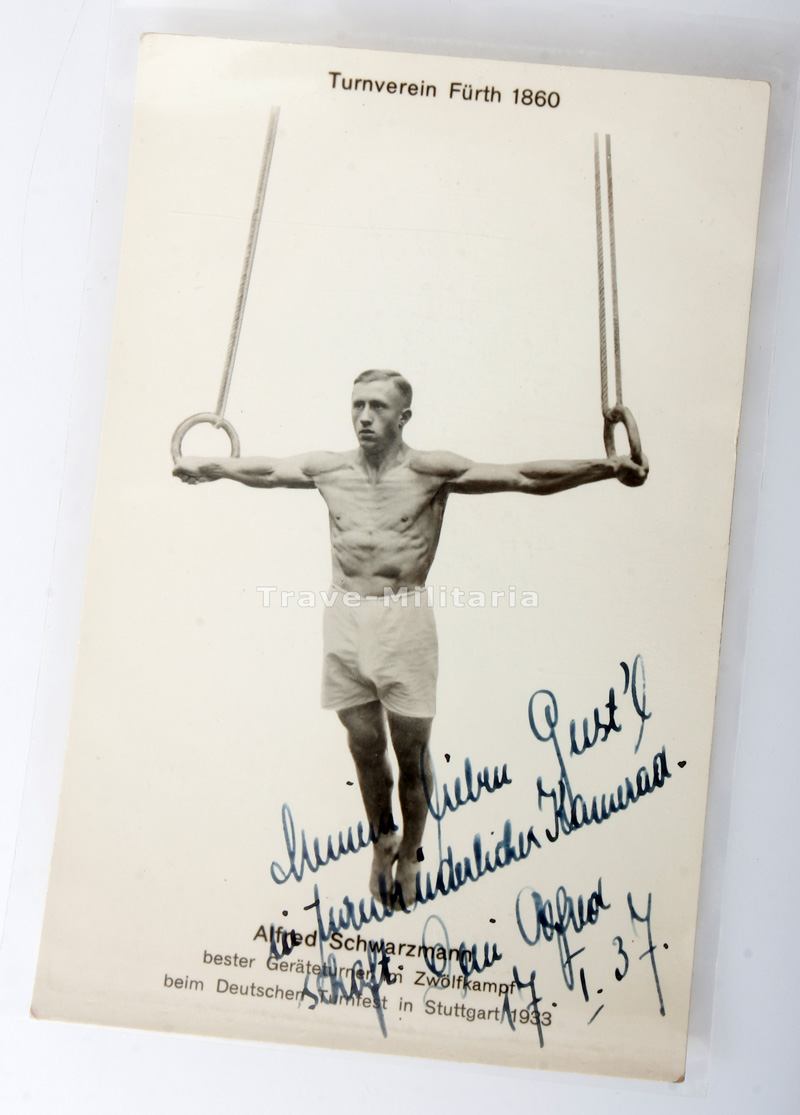 Turnverein Fürth 1860
Trave-Militaria
Meinem lieben Gust'l
in turnbrüderlicher Kamerad.
schaft. Dein Alfred
17. I. 37.
Alfred Schwarzmann
bester Geräteturner im Zwölfkampf
beim Deutschen Turnfest in Stuttgart 1933